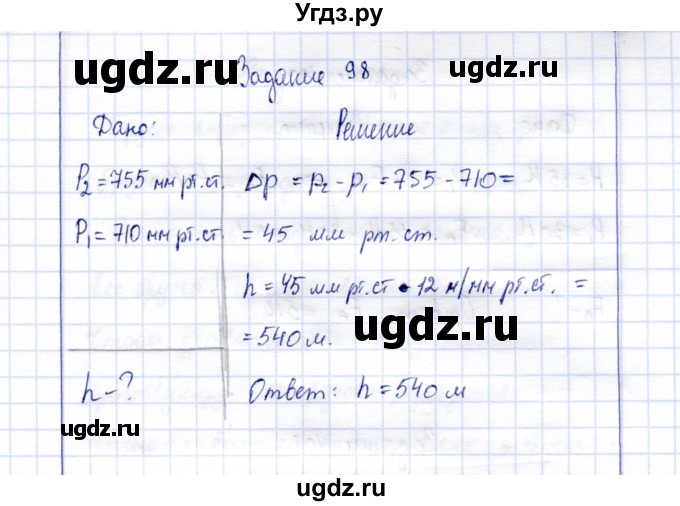 Угдз.ру
ugdz.ru
Задание 98
ugdz.ru
Дано:
Решение
P₂ = 755 мм рт.ст.
Δp = p₂ - p₁ = 755 - 710 =
P₁ = 710 мм рт.ст.
= 45 мм рт. ст.
h = 45 мм рт.ст • 12 м/мм рт.ст. =
ugdz.ru
= 540 м.
h - ?
Ответ: h = 540 м
ugdz.ru
ugdz.ru